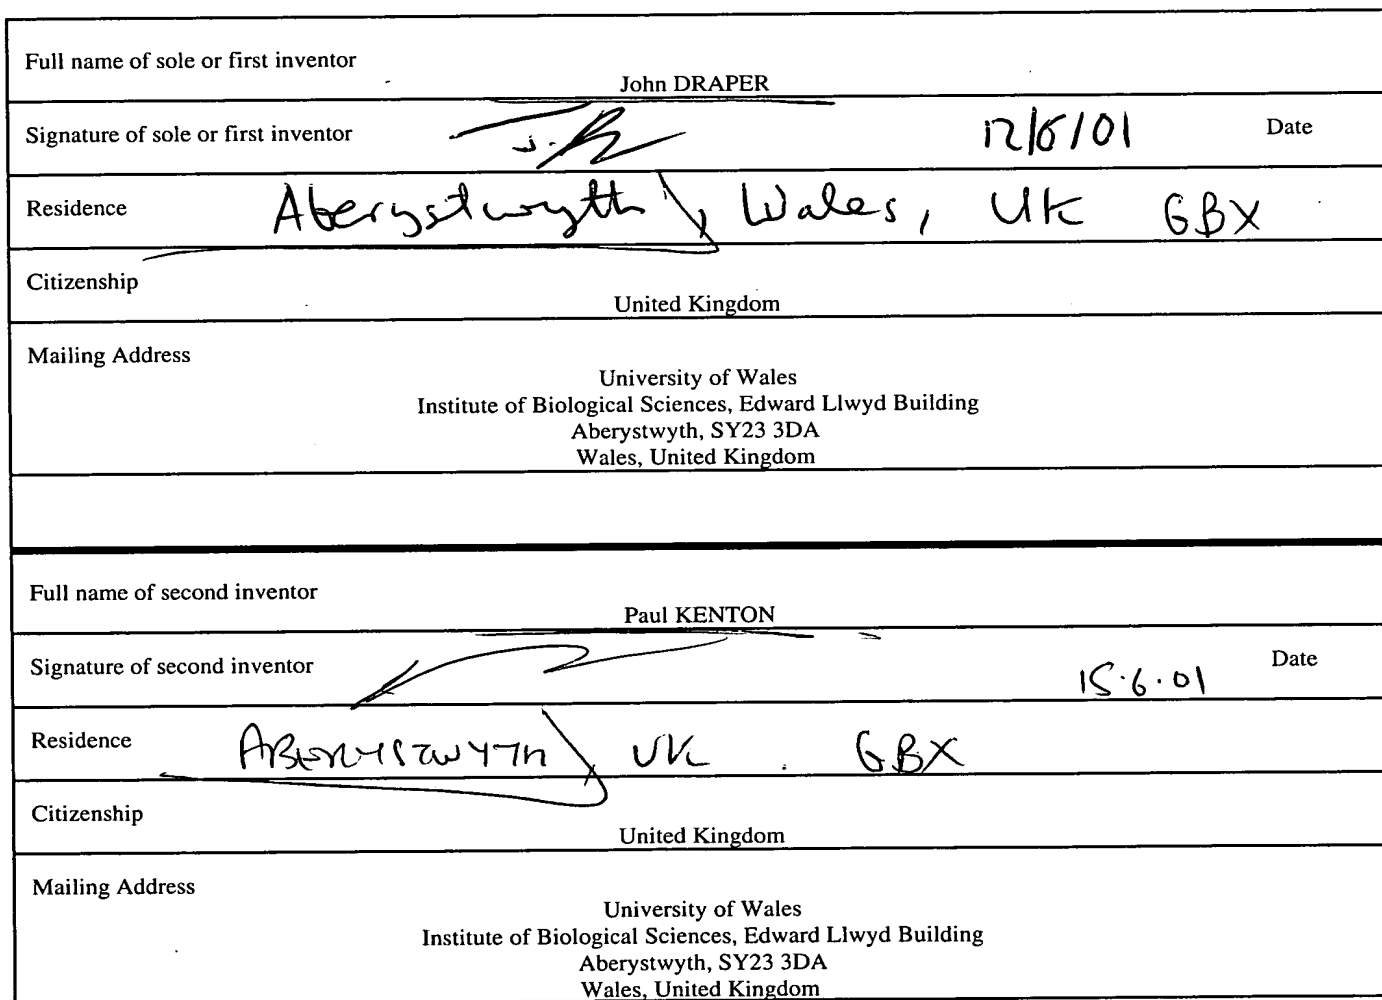 Full name of sole or first inventor
John DRAPER
Signature of sole or first inventor 12/6/01 Date
Residence Aberystwyth, Wales, UK GBX
Citizenship
United Kingdom
Mailing Address
University of Wales
Institute of Biological Sciences, Edward Llwyd Building
Aberystwyth, SY23 3DA
Wales, United Kingdom
Full name of second inventor
Paul KENTON
Signature of second inventor 15.6.01 Date
Residence ABERYSTWYTH, UK. GBX
Citizenship
United Kingdom
Mailing Address
University of Wales
Institute of Biological Sciences, Edward Llwyd Building
Aberystwyth, SY23 3DA
Wales, United Kingdom